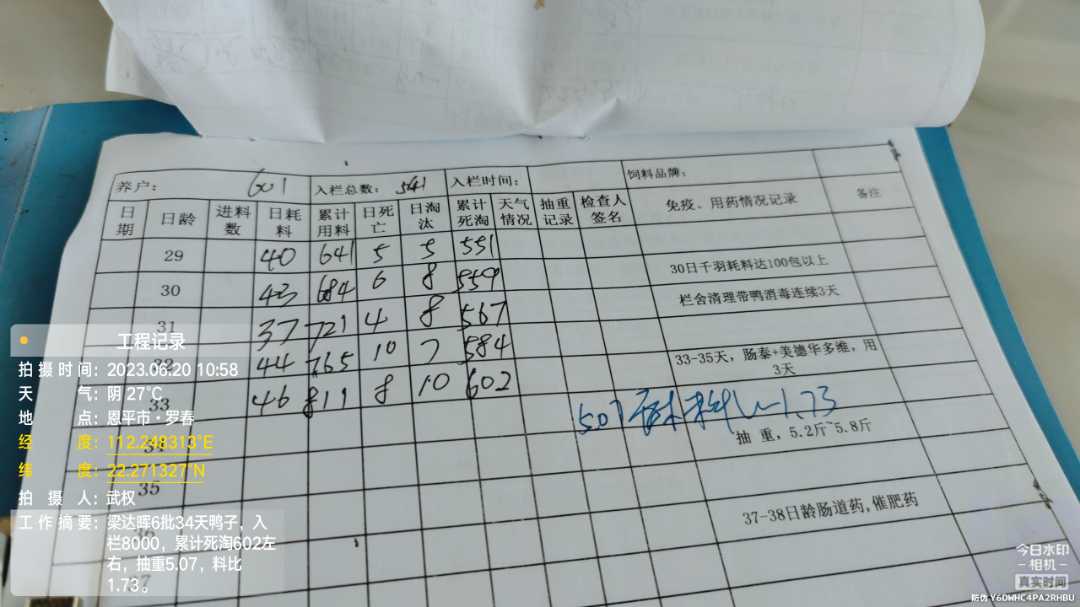 养户： 601 入栏总数： 541 入栏时间： 饲料品牌：
日期 日龄 进料数 日耗料 累计用料 日死亡 日淘汰 累计死淘 天气情况 抽重记录 检查人签名 免疫、用药情况记录 备注
29 40 641 5 5 551
30日千羽耗料达100包以上
30 43 684 6 8 559
栏舍清理带鸭消毒连续3天
31 37 721 4 8 567
32 44 765 10 7 584
33-35天，肠泰+美德华多维，用3天
33 46 811 8 10 602
507 1.73
34
抽 重，5.2斤~5.8斤
35
37-38日龄肠道药，催肥药
37
工程记录
拍摄时间：2023.06.20 10:58
天 气：阴 27℃
地 点：恩平市·罗春
经 度：112.248313°E
纬 度：22.271327°N
拍 摄 人：武权
工作摘要：梁达晖6批34天鸭子，入
栏8000，累计死淘602左
右，抽重5.07，料比
1.73。
今日水印
-相机-
真实时间
防伪 Y6DWHC4PA2RHBU